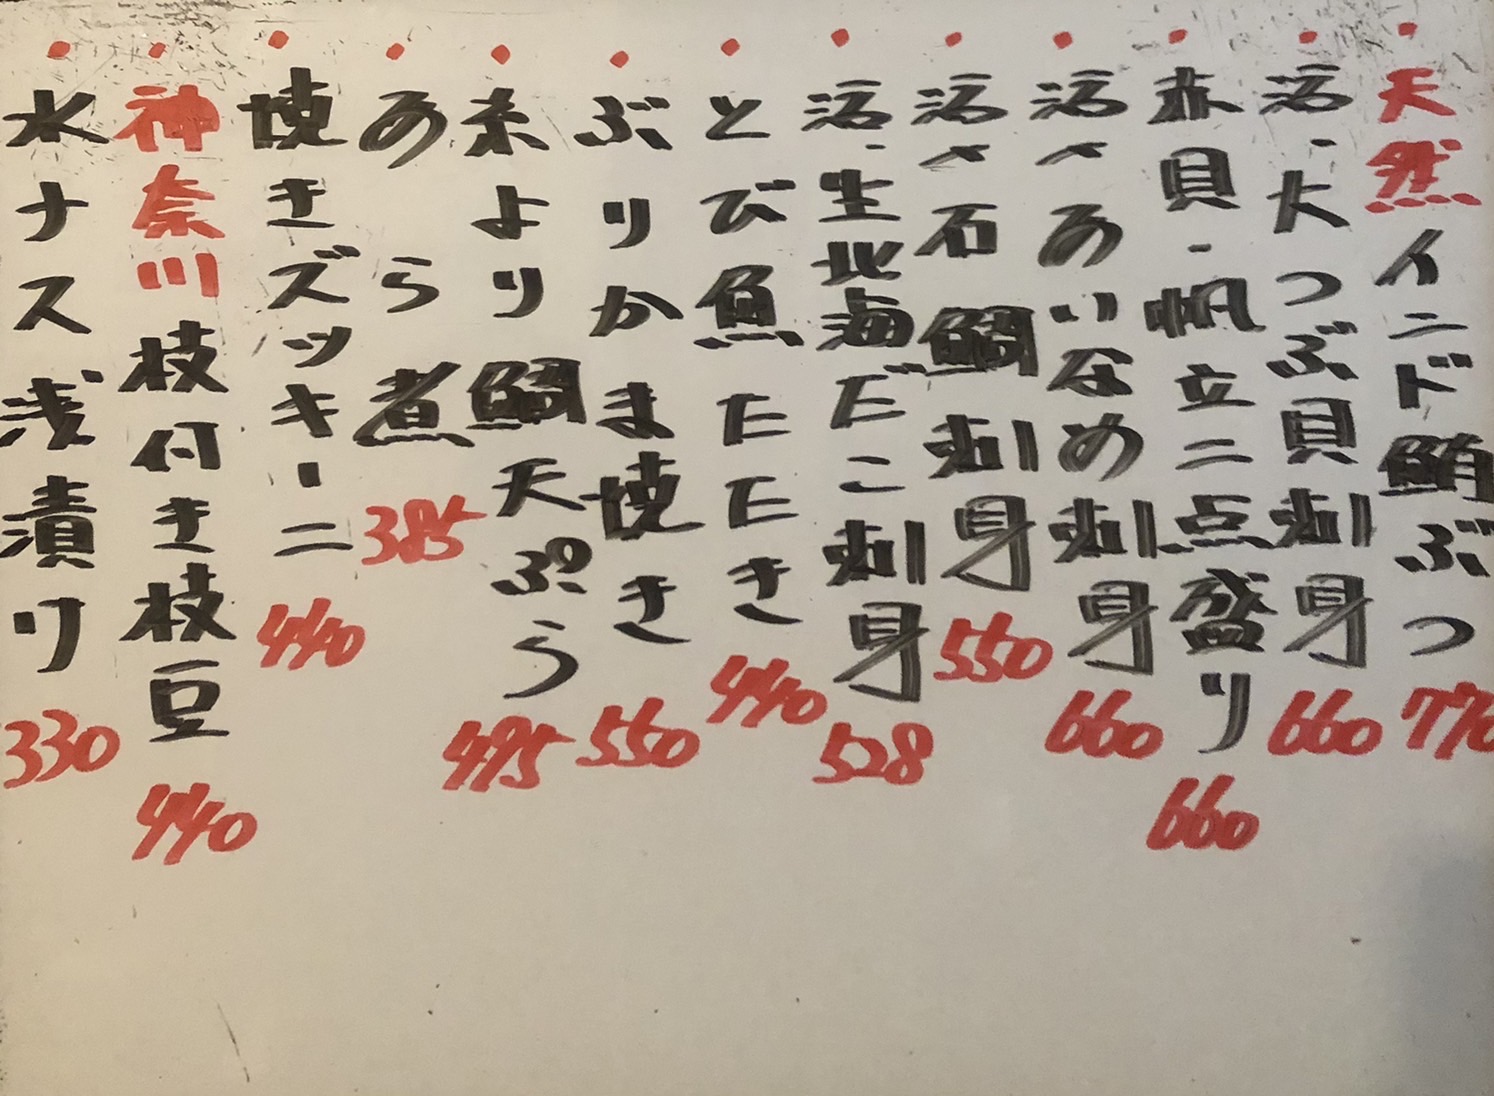 天然インド鮪ぶつ 770
活、大つぶ貝刺身 660
赤貝、帆立二点盛り 660
活〆あいなめ刺身 660
活〆石鯛刺身 550
活、生北海だこ刺身 528
とび魚たたき 440
ぶりかま焼き 550
糸より鯛天ぷら 495
あら煮 385
焼きズッキーニ 440
神奈川枝付き枝豆 440
水ナス浅漬け 330